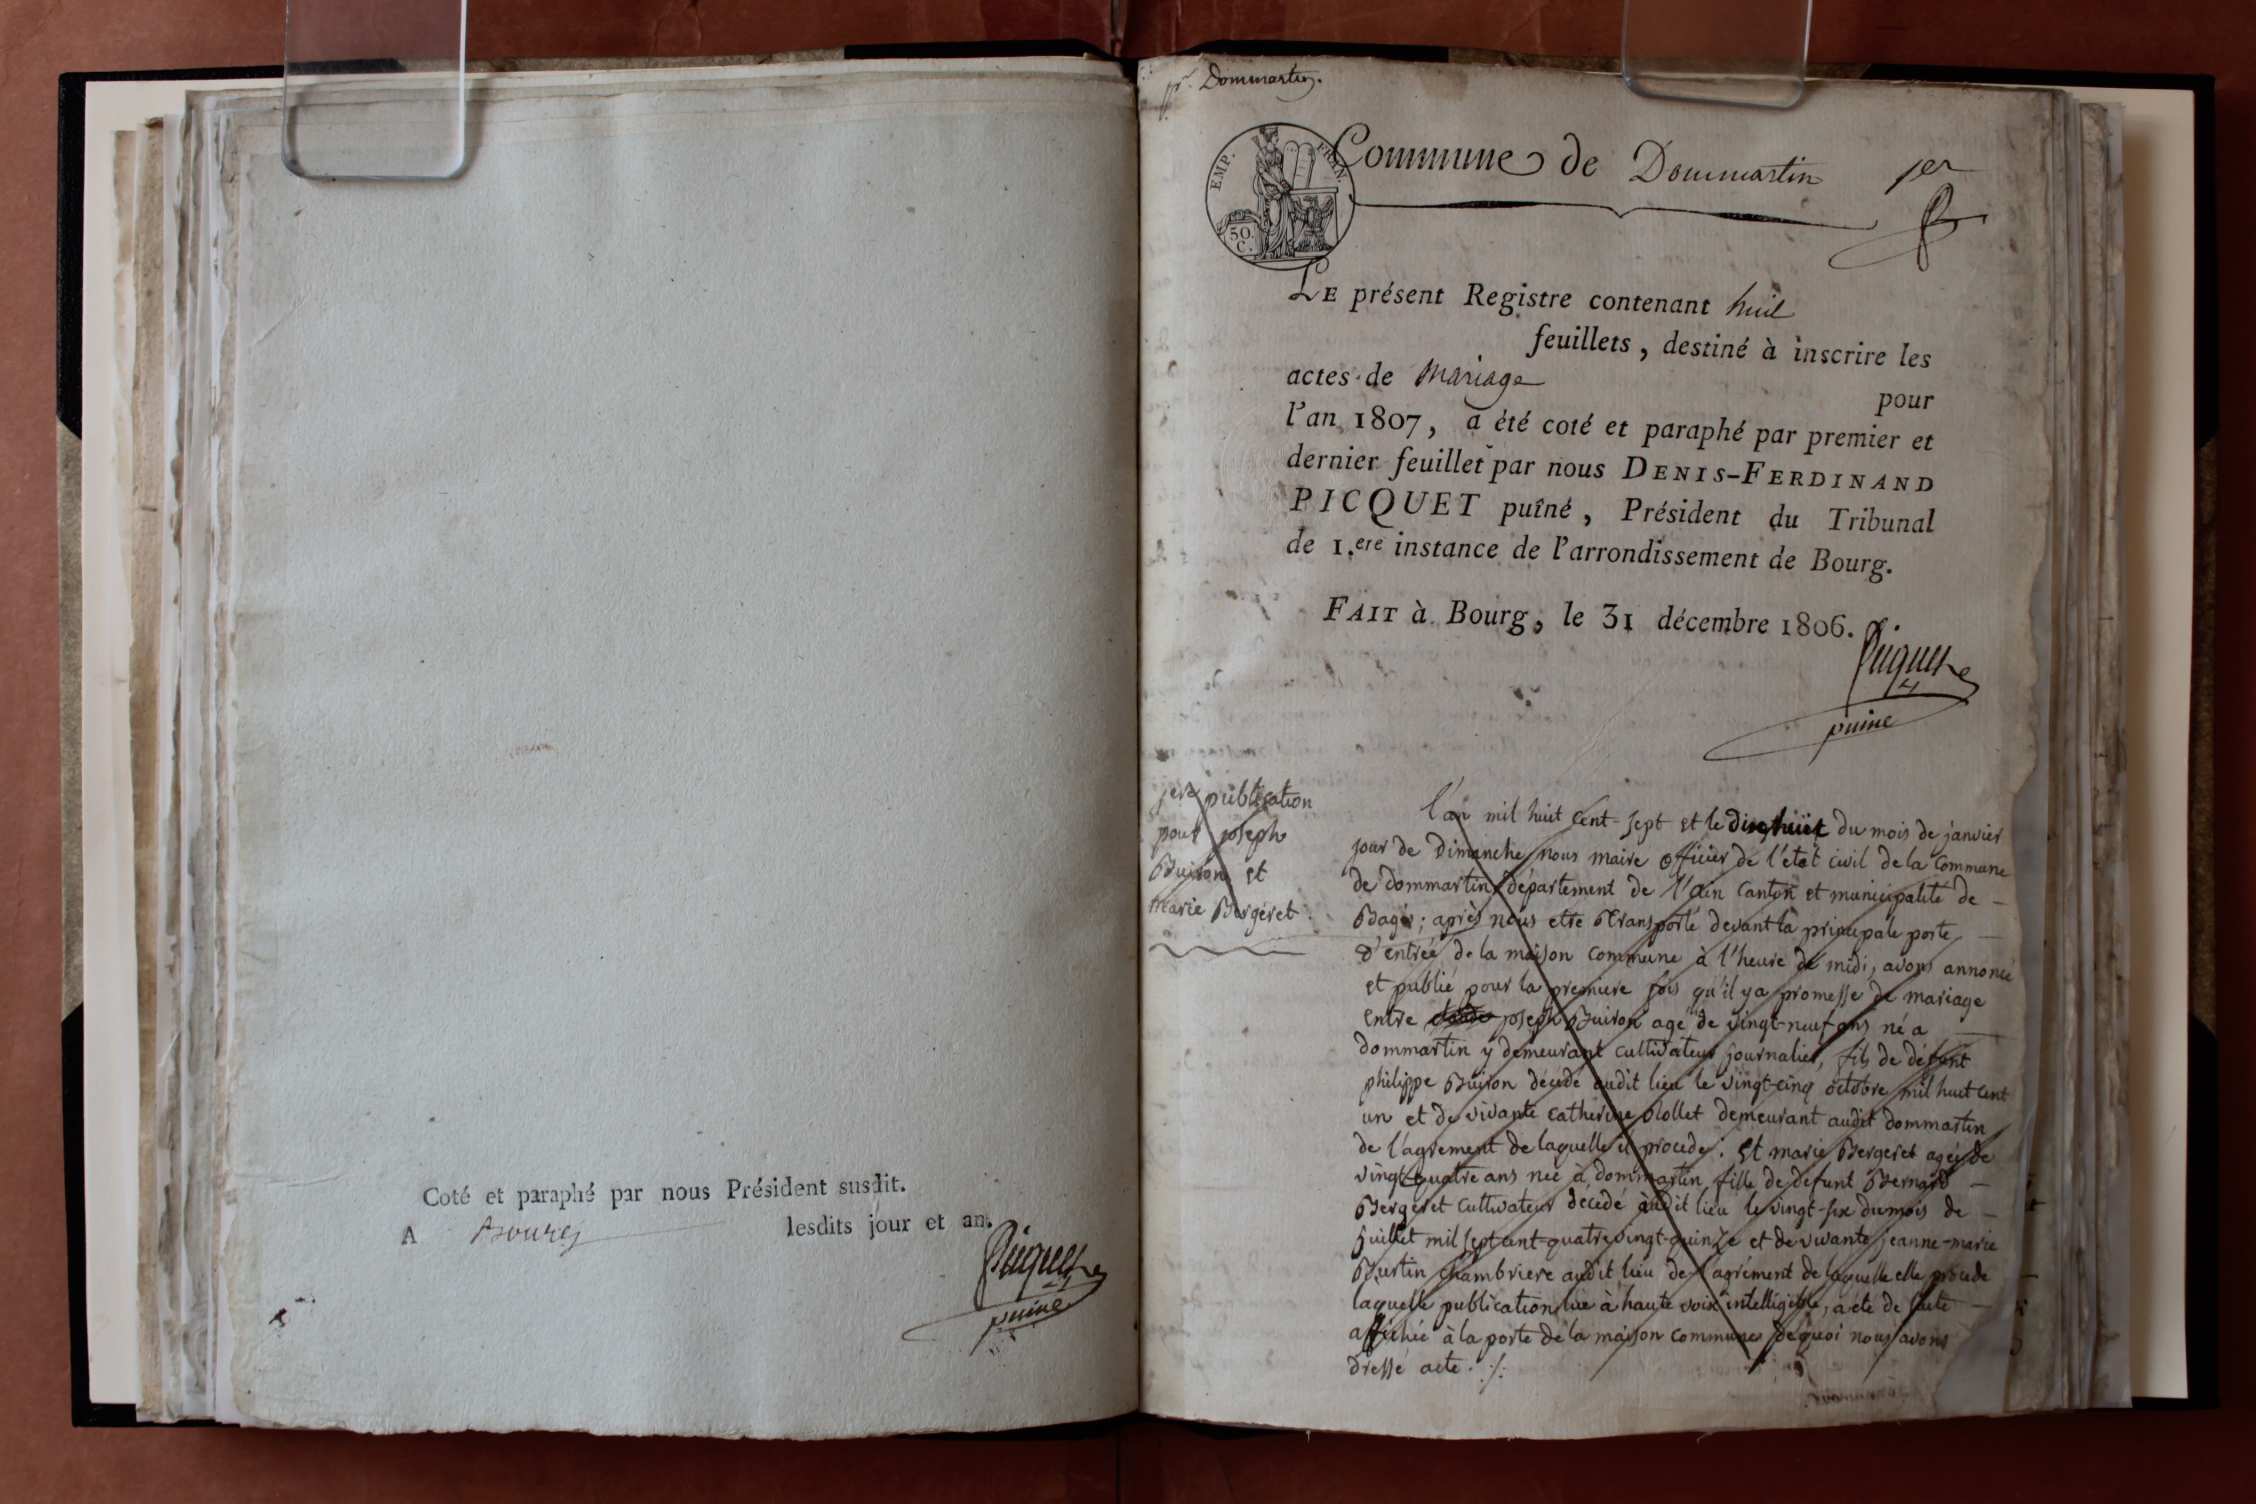 Coté et paraphé par nous Président susdit.
A Bourg lesdits jour et an.
Picquet
puiné
pr. Dommartin.
EMP. FRAN.
50.
C.
Commune de Dommartin 1er
LE présent Registre contenant huit
feuillets, destiné à inscrire les
actes de Mariage
pour
l'an 1807, a été coté et paraphé par premier et
dernier feuillet par nous DENIS-FERDINAND
PICQUET puîné, Président du Tribunal
de 1.ere instance de l'arrondissement de Bourg.
FAIT à Bourg, le 31 décembre 1806.
Picquet
puiné
1ere publication
pour joseph
Buiron et
marie Bergeret
l'an mil huit cent-sept et le dixhuit du mois de janvier
jour de Dimanche nous maire officier de l'état civil de la commune
de dommartin département de l'ain canton et municipalité de
Bagé; après nous etre transporté devant la principale porte
d'entrée de la maison commune à l'heure de midi, avons annoncé
et publié pour la premiere fois qu'il y a promesse de mariage
entre joseph Buiron agé de vingt-neuf ans né a
dommartin y demeurant cultivateur journalier, fils de défunt
philippe Buiron décedé audit lieu le vingt-cinq octobre mil huit cent
un et de vivante catherine Rollet demeurant audit dommartin
de l'agrement de laquelle il procede: et marie Bergeret agée de
vingt-quatre ans née à dommartin fille de defunt Bernard
Bergeret cultivateur decedé audit lieu le vingt-six du mois de
juillet mil sept cent quatre vingt-quinze et de vivante jeanne-marie
Burtin chambriere audit lieu de l'agrément de laquelle elle procede
laquelle publication lue à haute voix intelligible, a été de suite
affichée à la porte de la maison commune de quoi nous avons
dressé acte. ./.